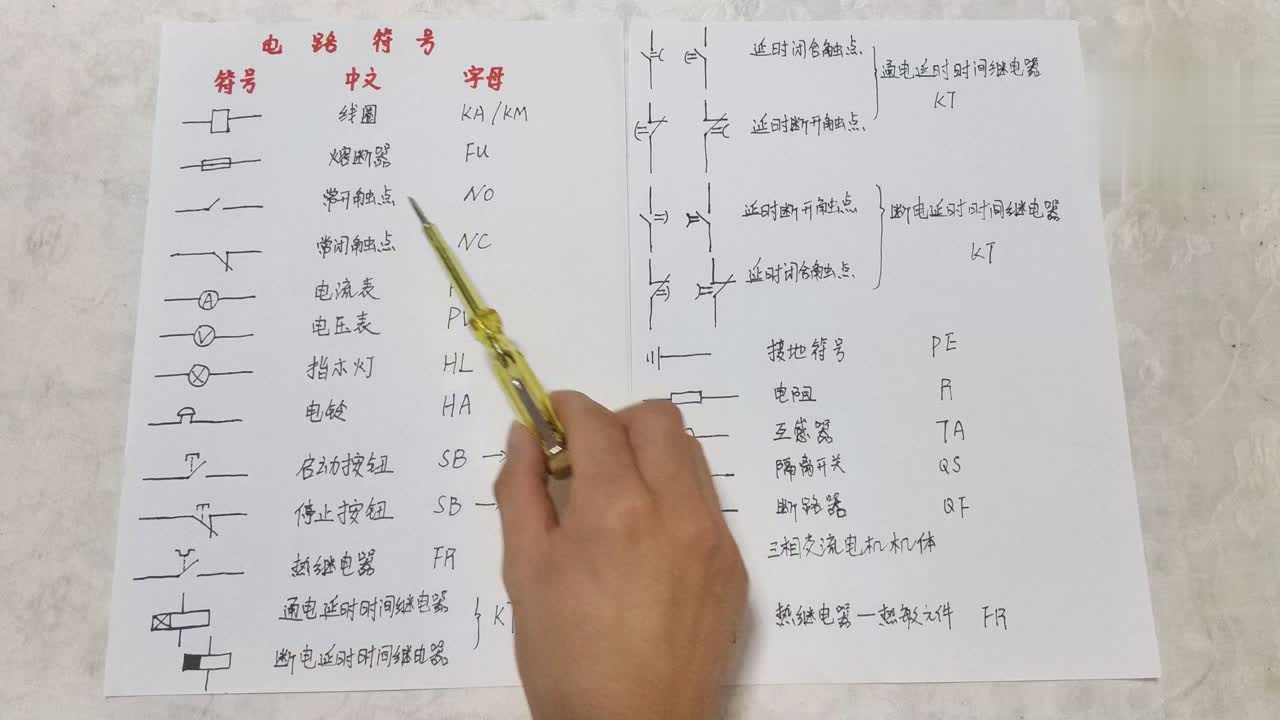 电路符号
符号 中文 字母
线圈 KA/KM
熔断器 FU
常开触点 NO
常闭触点 NC
A 电流表
V 电压表
挡木灯 HL
电铃 HA
启动按钮 SB →
停止按钮 SB →
热继电器 FR
通电延时时间继电器
断电延时时间继电器
延时闭合触点
延时断开触点
通电延时时间继电器
KT
延时断开触点
延时闭合触点
断电延时时间继电器
KT
接地符号 PE
电阻 R
互感器 TA
隔离开关 QS
断路器 QF
三相交流电机机体
热继电器一热敏元件 FR